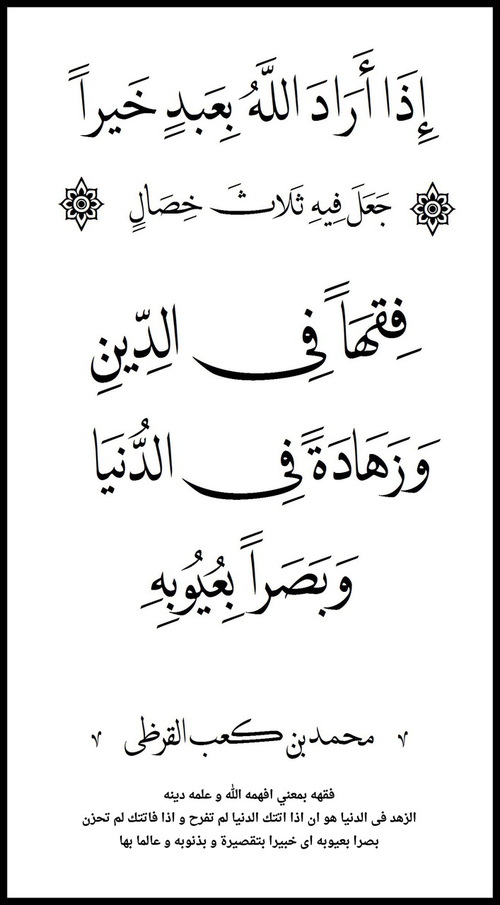 إِذَا أَرَادَ اللَّهُ بِعَبدٍ خَيراً
جَعَلَ فِيهِ ثَلَاثَ خِصَالٍ
فِقهَاً فِى الدِّينِ
وَزَهَادَةً فِى الدُّنيَا
وَبَصَراً بِعُيُوبِهِ
محمد بن كعب القرظى
فقهه بمعني افهمه الله و علمه دينه
الزهد فى الدنيا هو ان اذا اتتك الدنيا لم تفرح و اذا فاتتك لم تحزن
بصرا بعيوبه اى خبيرا بتقصيرة و بذنوبه و عالما بها